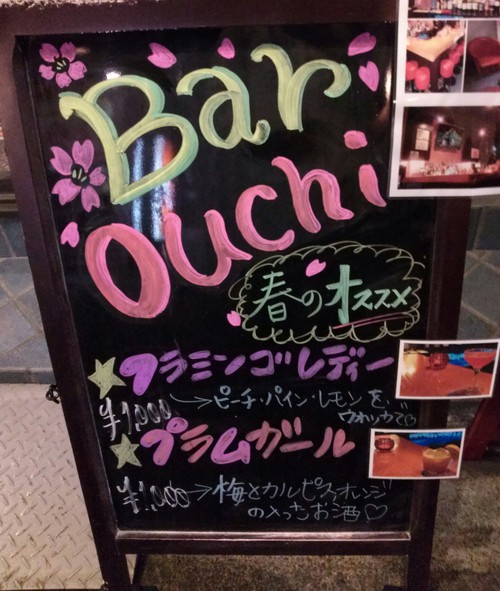 Bar
Ouchi
春のオススメ
フラミンゴレディー
¥1,000 →ピーチ・パイン・レモンを、
ウォッカで♡
プラムガール
¥1,000 →梅とカルピスオレンジ
のお酒♡